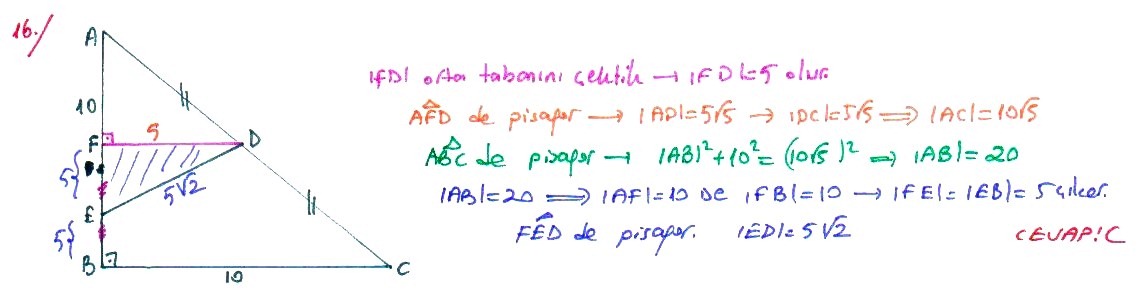 16./
A
10
F
5
D
5
E
5√2
5
B
10
C
|FD| orta tabanını çektik → |FD|=5 olur.
AFD de pisagor → |AD|=5√5 → |DC|=5√5 ⟹ |AC|=10√5
ABC de pisagor → |AB|²+10²=(10√5)² ⟹ |AB|=20
|AB|=20 ⟹ |AF|=10 De |FB|=10 → |FE|=|EB|=5 çıkar.
FED de pisagor. |ED|=5√2
CEVAP: C